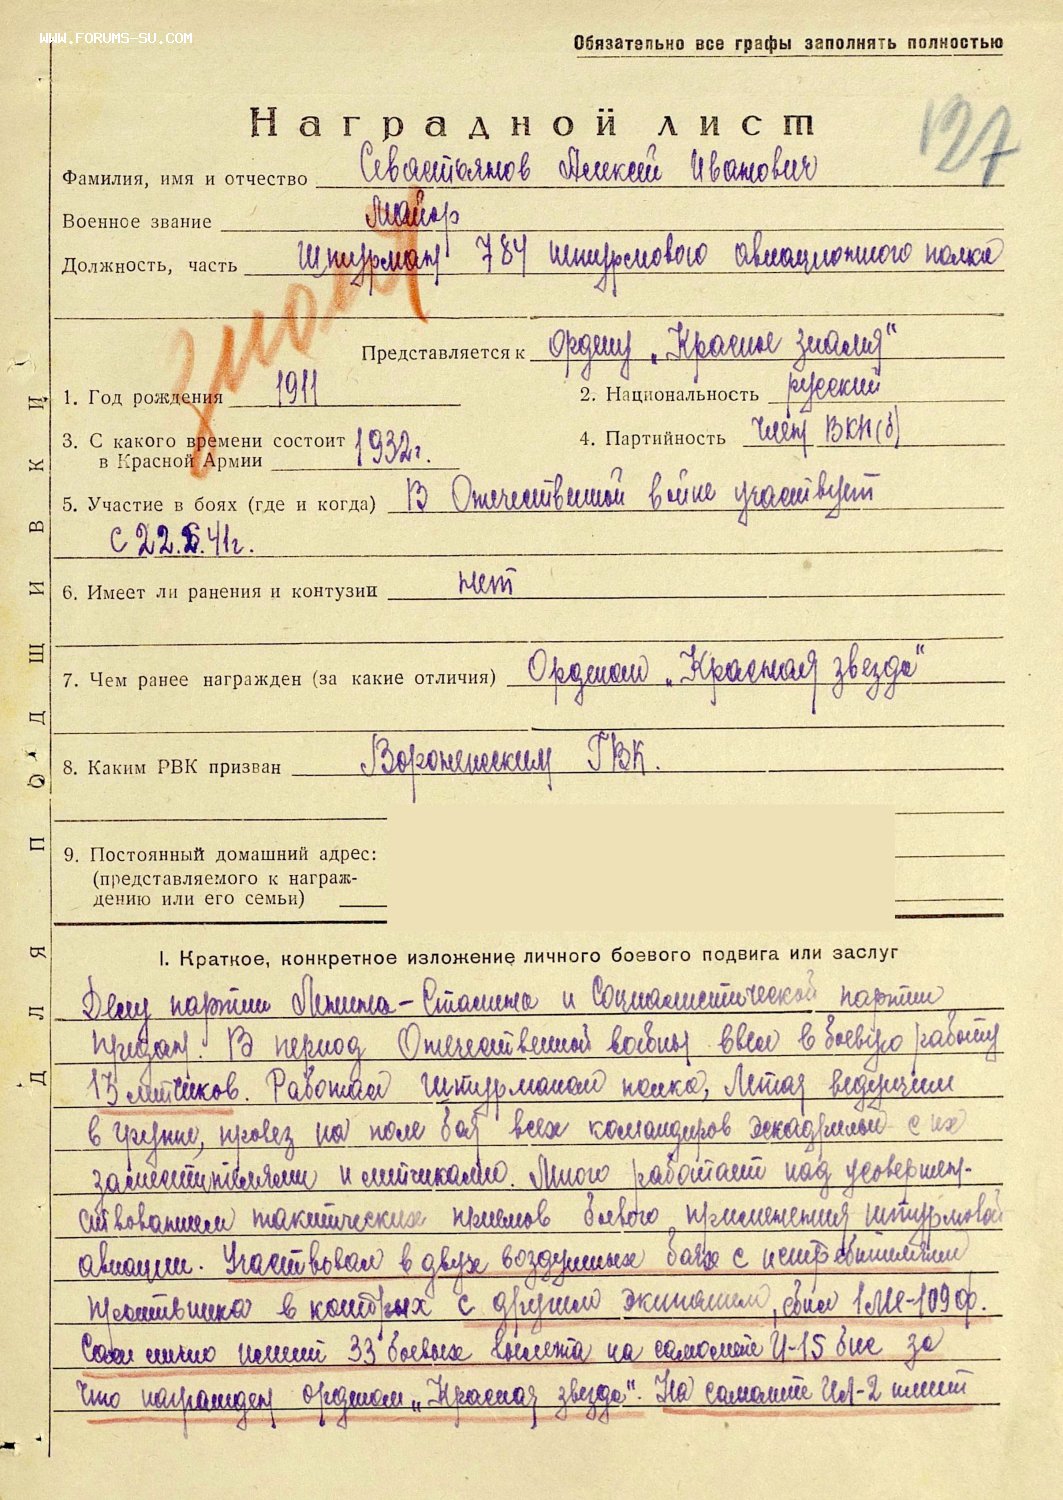 WWW.FORUMS-SU.COM
Обязательно все графы заполнять полностью
127
Наградной лист
Фамилия, имя и отчество Севастьянов Алексей Иванович
Военное звание Майор
Должность, часть Штурман 784 штурмового авиационного полка
Представляется к ордену „Красное знамя“
1. Год рождения 1911
2. Национальность русский
3. С какого времени состоит
в Красной Армии 1932г.
4. Партийность член ВКП(б)
5. Участие в боях (где и когда) В Отечественной войне участвует
с 22.6.41г.
6. Имеет ли ранения и контузии нет
7. Чем ранее награжден (за какие отличия) Орденом „Красная звезда“
8. Каким РВК призван Воронежским ГВК.
9. Постоянный домашний адрес:
(представляемого к награж-
дению или его семьи)
ДЛЯ ПОДШИВКИ
I. Краткое, конкретное изложение личного боевого подвига или заслуг
Делу партии Ленина-Сталина и Социалистической партии
предан. В период Отечественной войны ввел в боевую работу
13 летчиков. Работая штурманом полка, летая ведущим
в группе, провез на поле боя всех командиров эскадрильи с их
заместителями и летчиками. Много работает над усовершен-
ствованием тактических приемов боевого применения штурмовой
авиации. Участвовал в двух воздушных боях с истребителями
противника в которых с другим экипажем, сбил 1 МЕ-109 ф.
Сам лично имеет 33 боевых вылета на самолете И-15 бис за
что награжден орденом „Красная звезда“. На самолете Ил-2 имеет